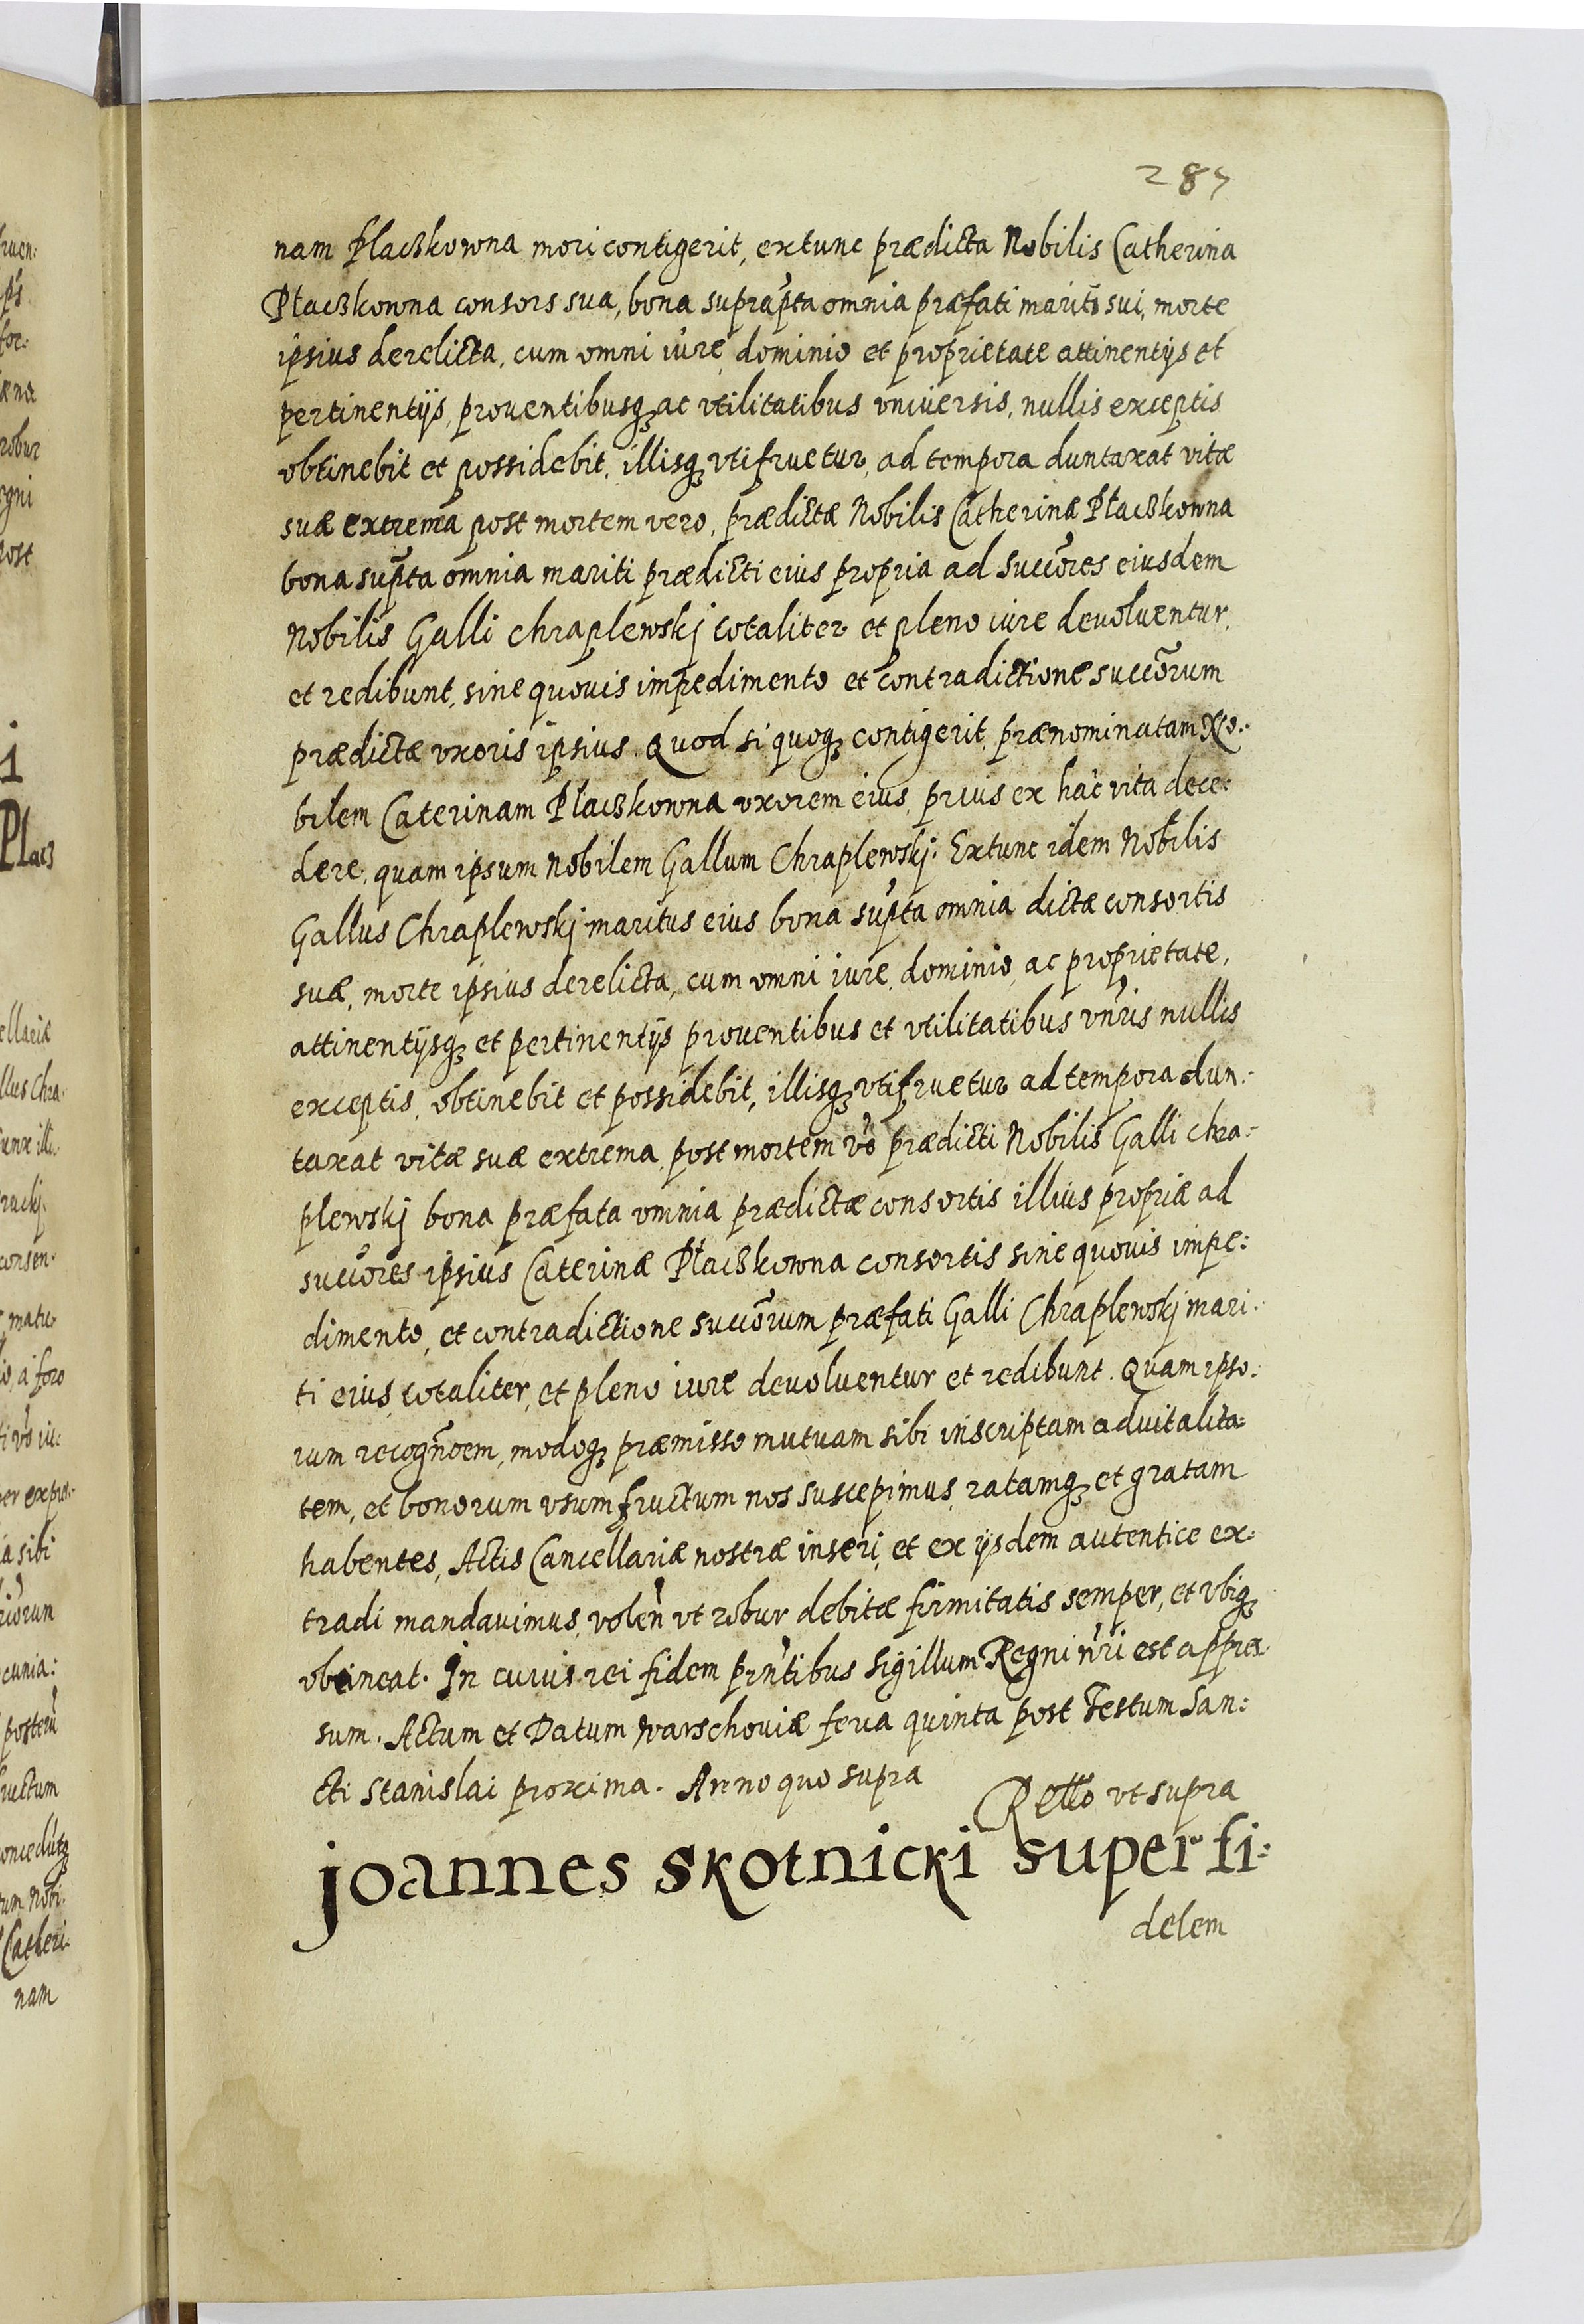 285
nam Placzkowna mori contigerit, extunc prædicta Nobilis Catherina
Płaczkowna consors sua, bona suprapta omnia præfati mariti sui, morte
ipsius derelicta, cum omni iure dominio et proprietate attinentijs et
pertinentijs, prouentibusq̃ ac vtilitatibus vniuersis, nullis exceptis
obtinebit et possidebit, illisq̃ vtifruetur, ad tempora duntaxat vitæ
suæ extrema post mortem vero, prædictæ Nobilis Catherinæ Płaczkowna
bona supta omnia mariti prædicti eius propria ad succores eiusdem
Nobilis Galli Chraplewskj totaliter et pleno iure deuoluentur,
et redibunt, sine quouis impedimento et contradictione succorum
prædictæ vxoris ipsius. Quod si quoq̃ contigerit, prænominatam No:
bilem Caterinam Placzkowna vxorem eius, prius ex hac vita dece:
dere, quam ipsum Nobilem Gallum Chraplewskj. Extunc idem Nobilis
Gallus Chraplewskj maritus eius bona supta omnia dictæ consortis
suæ, morte ipsius derelicta, cum omni iure, dominio, ac proprietate,
attinentijsq̃ et pertinentijs prouentibus et vtilitatibus vnris nullis
exceptis, obtinebit et possidebit, illisq̃ vtifruetur ad tempora dun:
taxat vitæ suæ extrema, post mortem vo prædicti Nobilis Galli Chra:
plewskj bona præfata omnia prædictæ consortis illius propriæ ad
succores ipsius Caterinæ Płaczkowna consortis sine quouis impe:
dimento, et contradictione succorum præfati Galli Chraplewskj mari:
ti eius, totaliter, et pleno iure deuoluentur et redibunt. Quam ipso:
rum recognoem, modoq̃ præmisso mutuam sibi inscriptam aduitalita:
tem, et bonorum vsumfructum nos suscepimus, ratamq̃ et gratam
habentes, Actis Cancellariæ nostræ inseri, et ex ijsdem autentice ex:
tradi mandauimus, volen vt robur debitæ firmitatis semper, et vbiq̃
obtineat. In cuius rei fidem prntibus Sigillum Regni nri est appres:
sum. Actum et Datum Warschouiæ feria quinta post Festum San:
cti Stanislai proxima. Anno quo supra
Rello vt supra
Joannes Skotnicki super fi:
delem